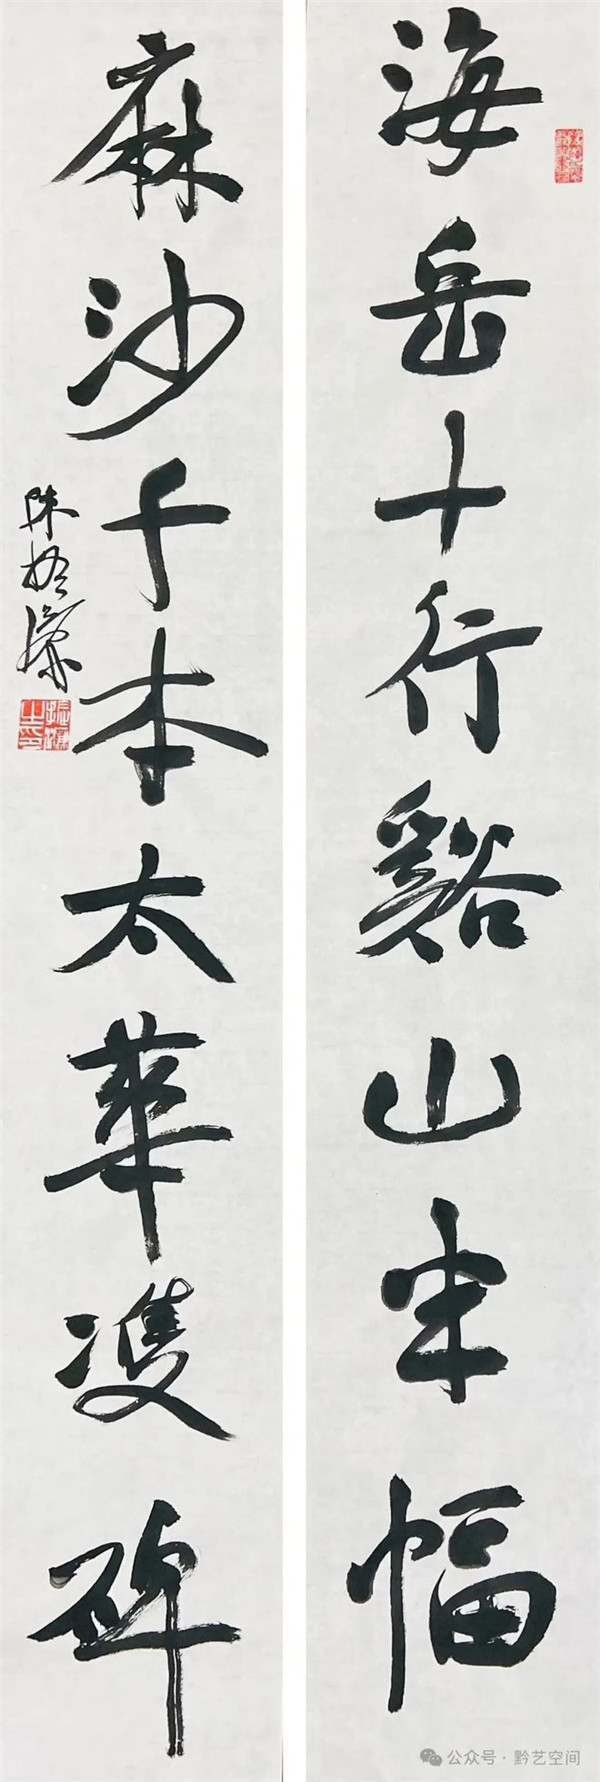 海岳十行谿山半幅
麻沙千本太華雙碑
陳振濂
公众号·黔艺空间